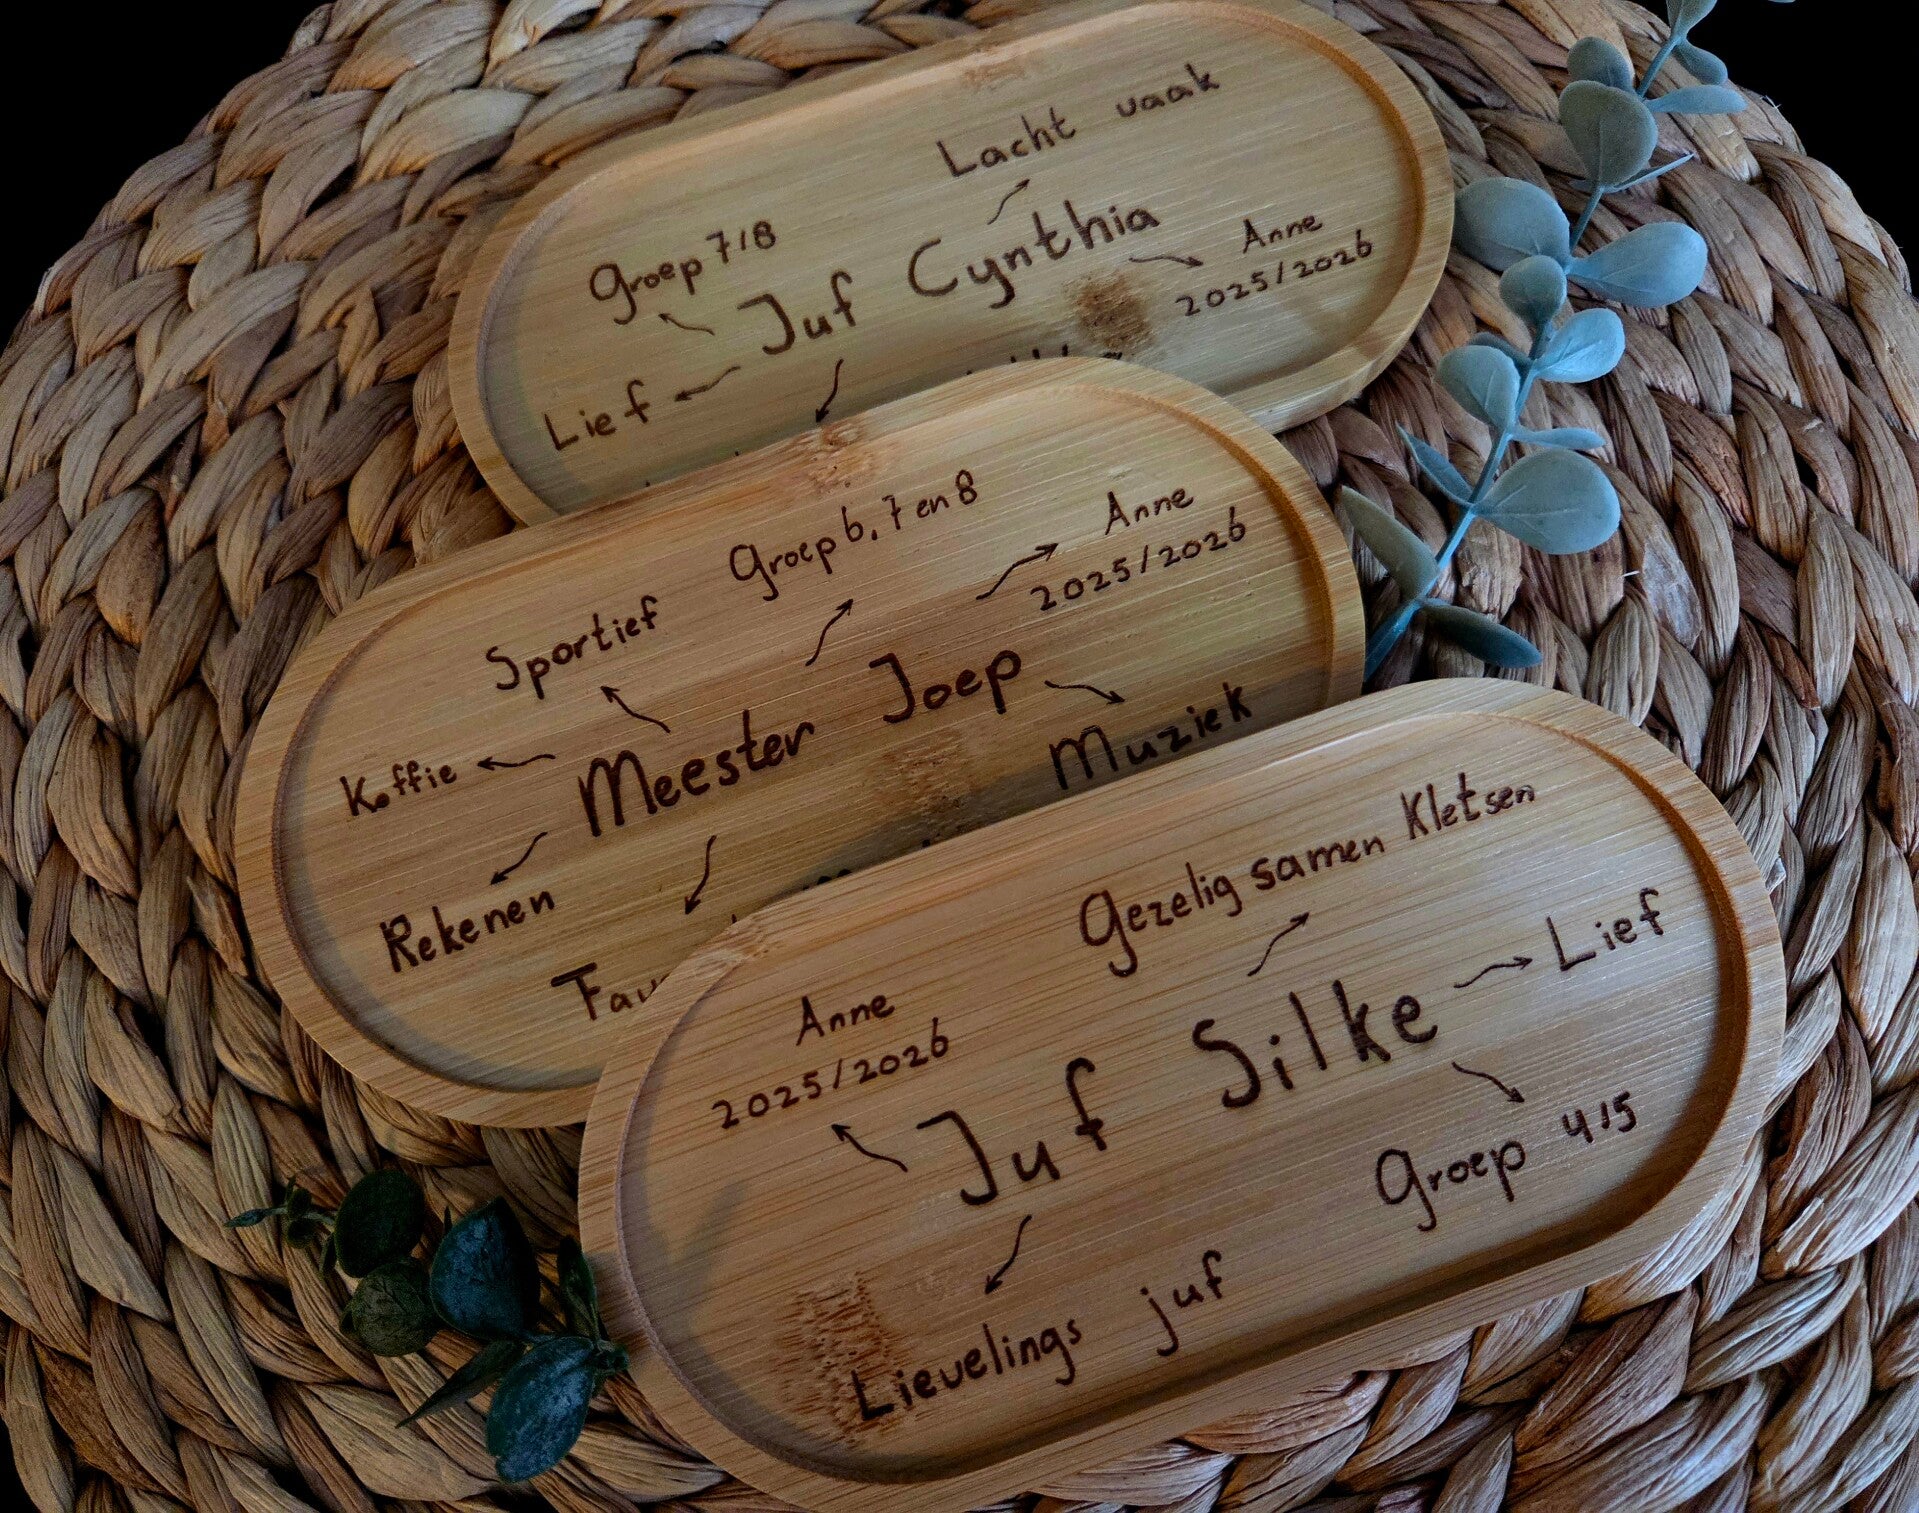 Lacht vaak
Groep 7/8
Juf Cynthia
Anne
2025/2026
Lief
Groep 6, 7 en 8
Anne
2025/2026
Sportief
Meester Joep
Muziek
Koffie
Rekenen
Gezelig samen Kletsen
Lief
Anne
2025/2026
Juf Silke
Groep 4/5
Lievelings juf